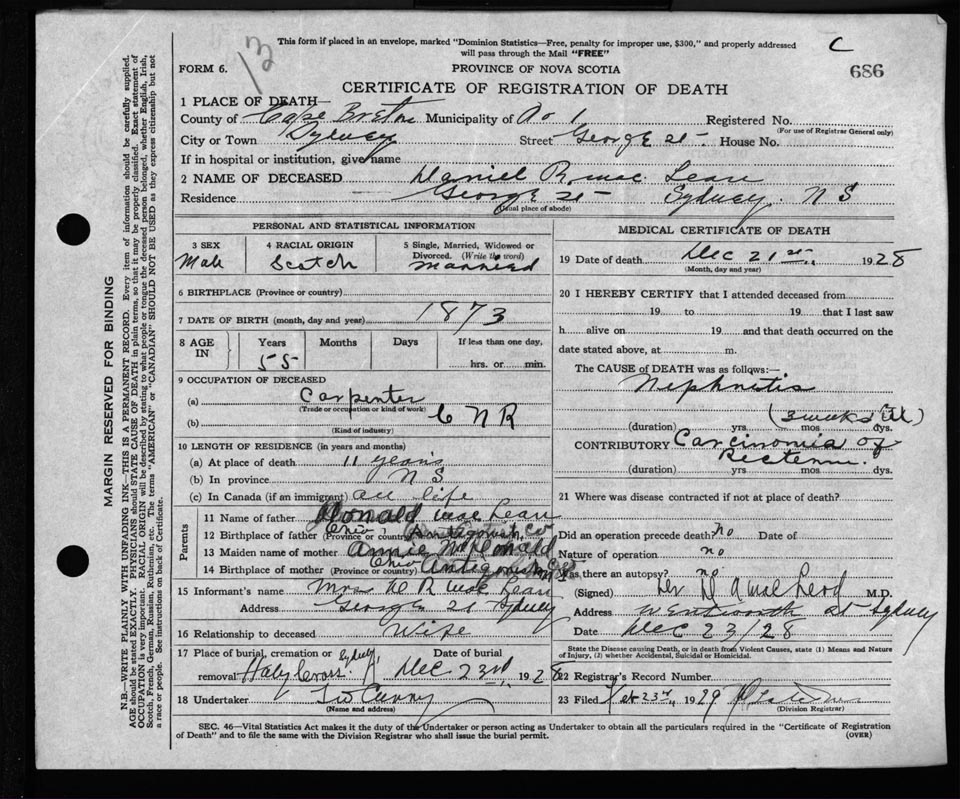 This form if placed in an envelope, marked "Dominion Statistics—Free, penalty for improper use, $300," and properly addressed
will pass through the Mail "FREE"
C
13
FORM 6.
PROVINCE OF NOVA SCOTIA
686
CERTIFICATE OF REGISTRATION OF DEATH
1 PLACE OF DEATH—
County of Cape Breton Municipality of No 1 Registered No.
(For use of Registrar General only)
City or Town Sydney Street George St. House No.
If in hospital or institution, give name
2 NAME OF DECEASED Daniel R. mac Lean
Residence George St Sydney. N S
(Usual place of abode)
PERSONAL AND STATISTICAL INFORMATION
3 SEX
Male
4 RACIAL ORIGIN
Scotch
5 Single, Married, Widowed or
Divorced. (Write the word)
Married
6 BIRTHPLACE (Province or country)
7 DATE OF BIRTH (month, day and year) 1873
8 AGE
IN
Years
55
Months
Days
If less than one day,
hrs. or min.
9 OCCUPATION OF DECEASED
(a) Carpenter
(Trade or occupation or kind of work)
(b) C N R
(Kind of industry)
10 LENGTH OF RESIDENCE (in years and months)
(a) At place of death 11 years
(b) In province N S
(c) In Canada (if an immigrant) all life
Parents
11 Name of father Donald mac Lean
12 Birthplace of father (Province or country) Ohio Antigonish Co
13 Maiden name of mother Annie McDonald
14 Birthplace of mother (Province or country) Ohio Antigonish
15 Informant's name Mrs D R Mac Lean
Address George St Sydney
16 Relationship to deceased Wife
17 Place of burial, cremation or
removal Holy Cross Sydney
Date of burial
Dec. 23rd, 1928
18 Undertaker
(Name and address)
MEDICAL CERTIFICATE OF DEATH
19 Date of death Dec 21st, 1928
(Month, day and year)
20 I HEREBY CERTIFY that I attended deceased from
19 to 19 that I last saw
h alive on 19 and that death occurred on the
date stated above, at m.
The CAUSE of DEATH was as follows:—
Nephritis
(3 weeks ill)
(duration) yrs. mos. dys.
CONTRIBUTORY Carcinomia of
Rectem.
(duration) yrs. mos. dys.
21 Where was disease contracted if not at place of death?
Did an operation precede death? no Date of
Nature of operation no
Was there an autopsy? no
(Signed) Dr D A MacLeod M.D.
Address Wentworth St Sydney
Date Dec 23/28
State the Disease causing Death, or in death from Violent Causes, state (1) Means and Nature
of Injury, (2) whether Accidental, Suicidal or Homicidal.
22 Registrar's Record Number
23 Filed 23rd, 1929
(Division Registrar)
SEC. 46—Vital Statistics Act makes it the duty of the Undertaker or person acting as Undertaker to obtain all the particulars required in the "Certificate of Registration
of Death" and to file the same with the Division Registrar who shall issue the burial permit.
(OVER)
MARGIN RESERVED FOR BINDING
N.B.—WRITE PLAINLY WITH UNFADING INK—THIS IS A PERMANENT RECORD. Every item of information should be carefully supplied.
AGE should be stated EXACTLY. PHYSICIANS should STATE CAUSE OF DEATH in plain terms, so that it may be properly classified. Exact statement of
OCCUPATION is very important. RACIAL ORIGIN will be described by stating to what people or tongue the deceased person belonged, whether English, Irish,
Scotch, French, German, Russian, Ruthenian, etc. The terms "AMERICAN" or "CANADIAN" SHOULD NOT BE USED as they express citizenship but not
a race or people. See instructions on back of Certificate.